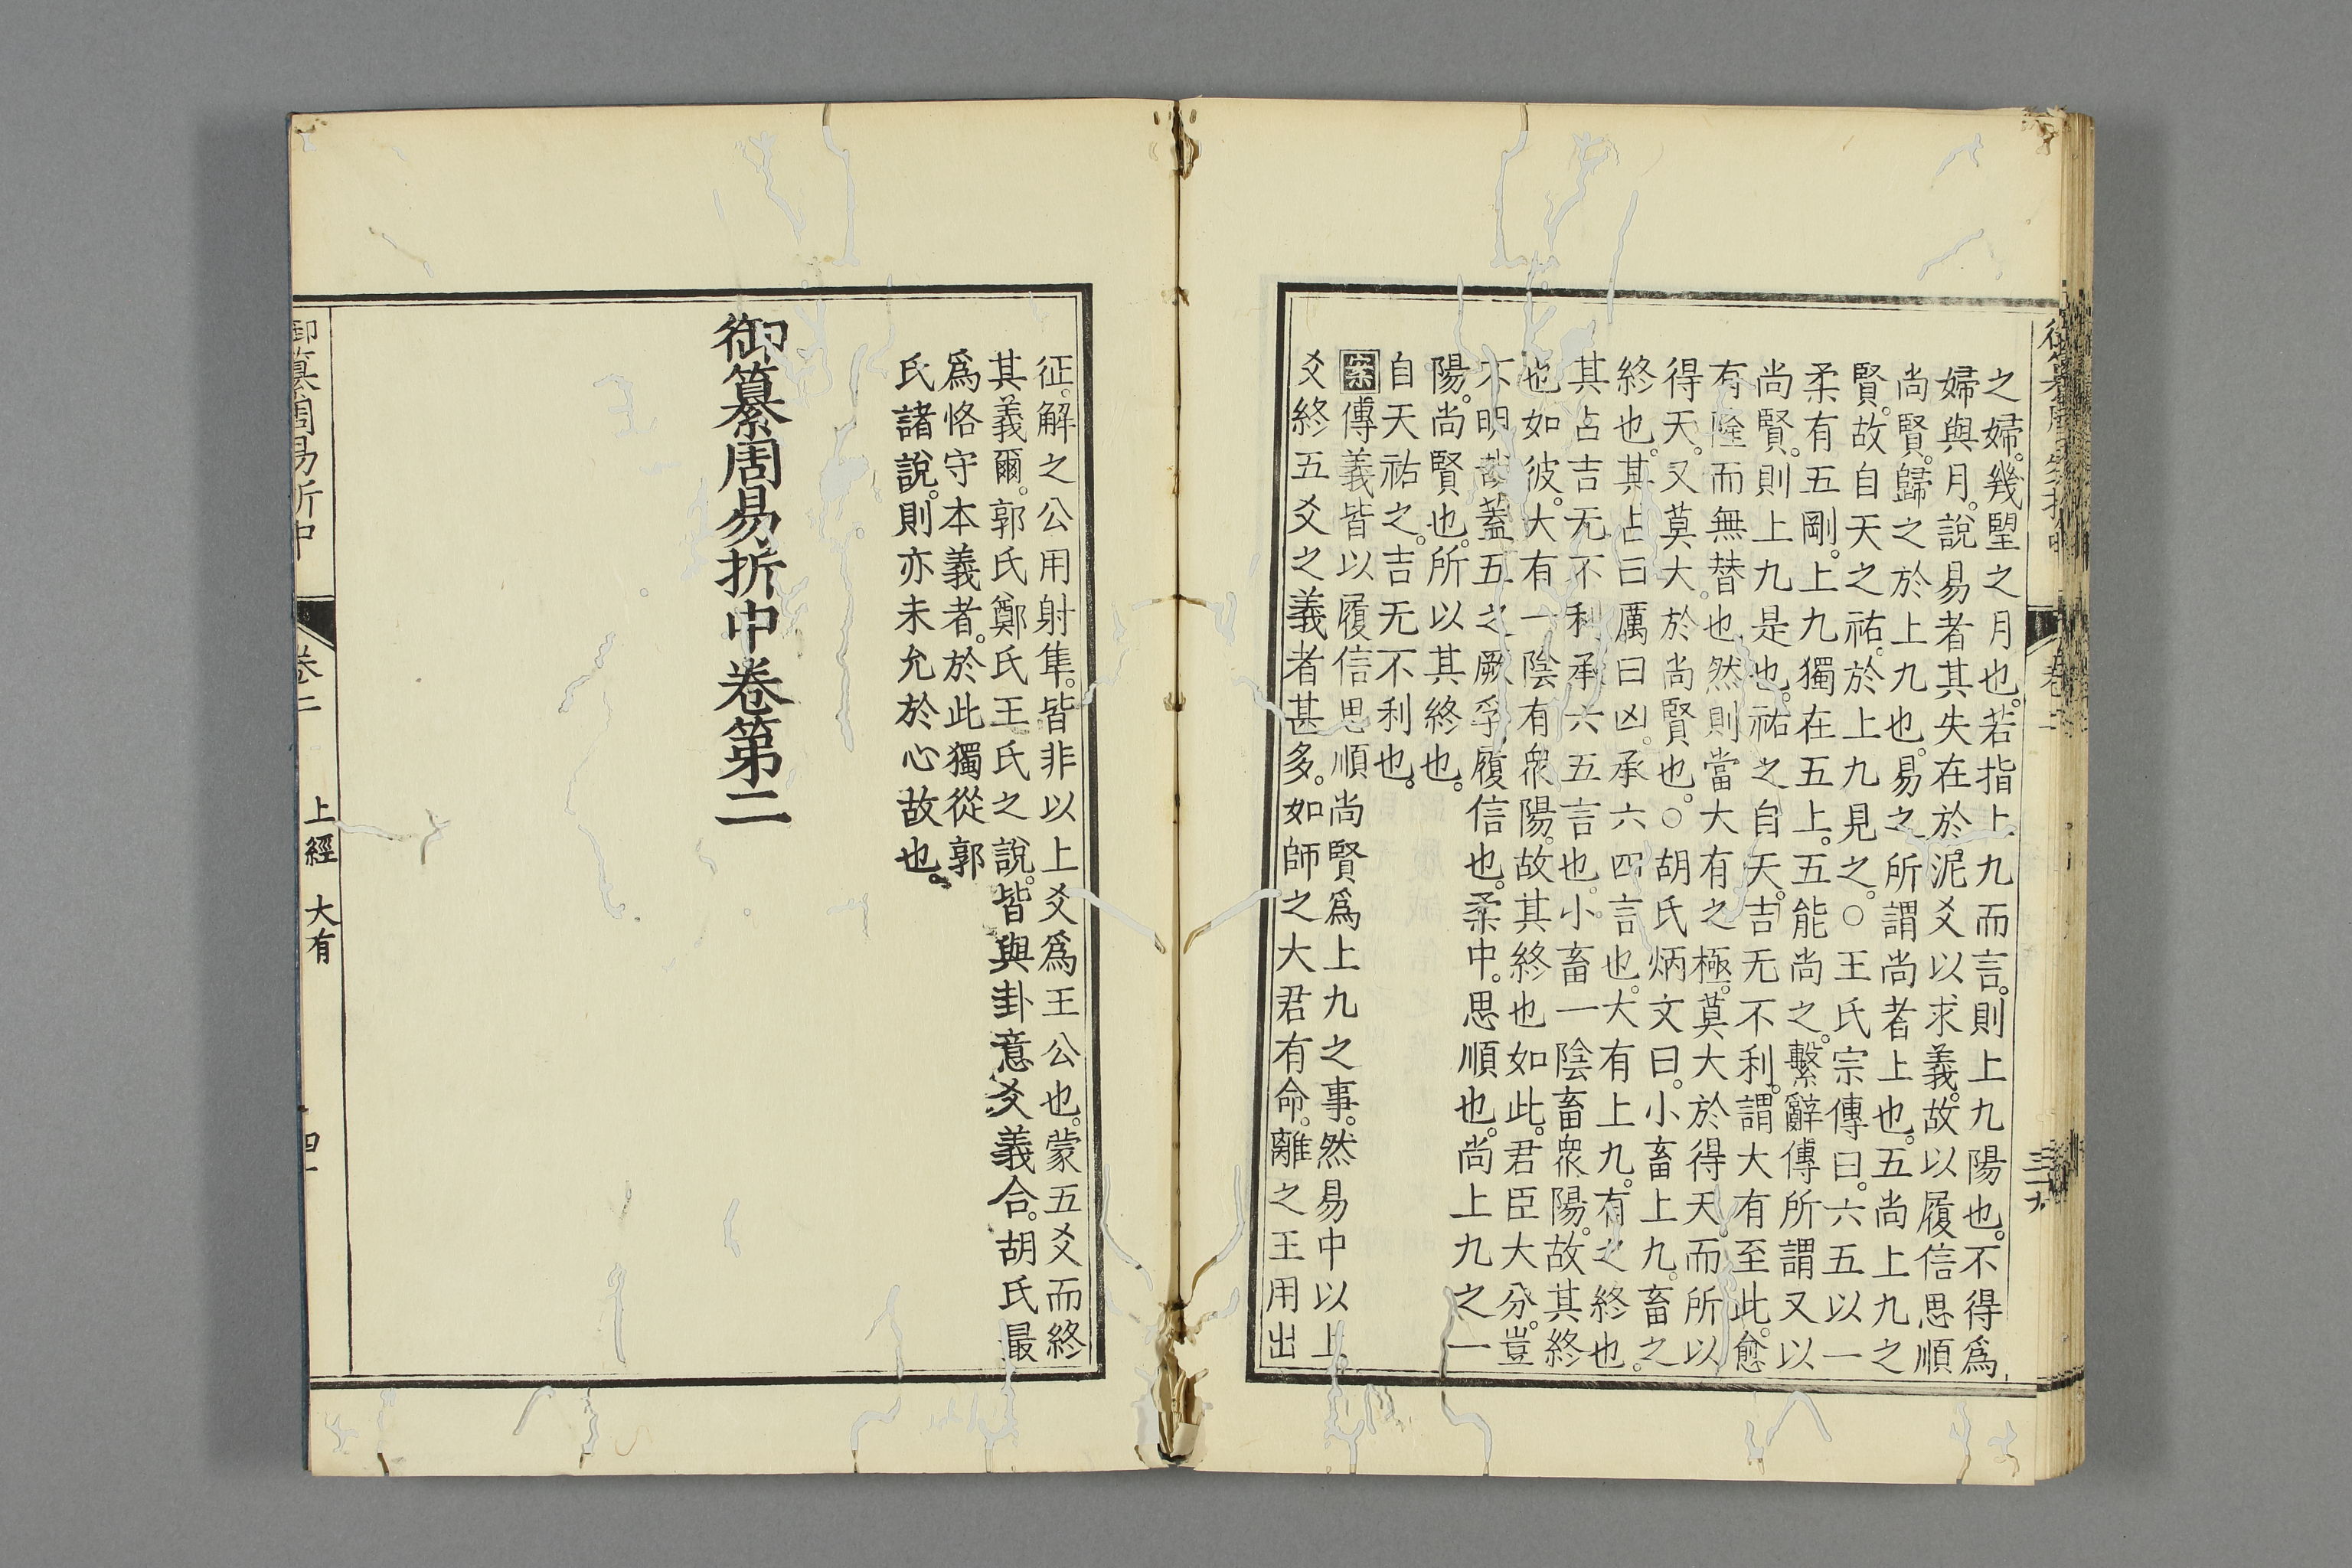 之婦。幾朢之月也。若指上九而言。則上九陽也。不得爲
婦與月。說易者其失在於泥爻以求義。故以履信思順
尚賢。歸之於上九也。易之所謂尚者上也。五尚上九之
賢。故自天之祐。於上九見之。○王氏宗傳曰。六五以一
柔有五剛。上九獨在五上。五能尚之。繫辭傳所謂又以
尚賢。則上九是也。祐之自天。吉无不利。謂大有至此。愈
有隆而無替也。然則當大有之極。莫大於得天。而所以
得天。又莫大於尚賢也。○胡氏炳文曰。小畜上九。畜之
終也。其占曰厲曰凶。承六四言也。大有上九。有之終也。
其占吉无不利。承六五言也。小畜一陰畜衆陽。故其終
也如彼。大有一陰有衆陽。故其終也如此。君臣大分。豈
不明哉。蓋五之厥孚履信也。柔中。思順也。尚上九之一
陽。尚賢也。所以其終也。
自天祐之。吉无不利也。
案傳義皆以履信思順尚賢爲上九之事。然易中以上
爻終五爻之義者甚多。如師之大君有命。離之王用出
征。解之公用射隼。皆非以上爻爲王公也。蒙五爻而終
其義爾。郭氏鄭氏王氏之說。皆與卦意爻義合。胡氏最
爲恪守本義者。於此獨從郭
氏諸說。則亦未允於心故也。
御纂周易折中卷第二
御纂周易折中
卷二
上經 大有
四一